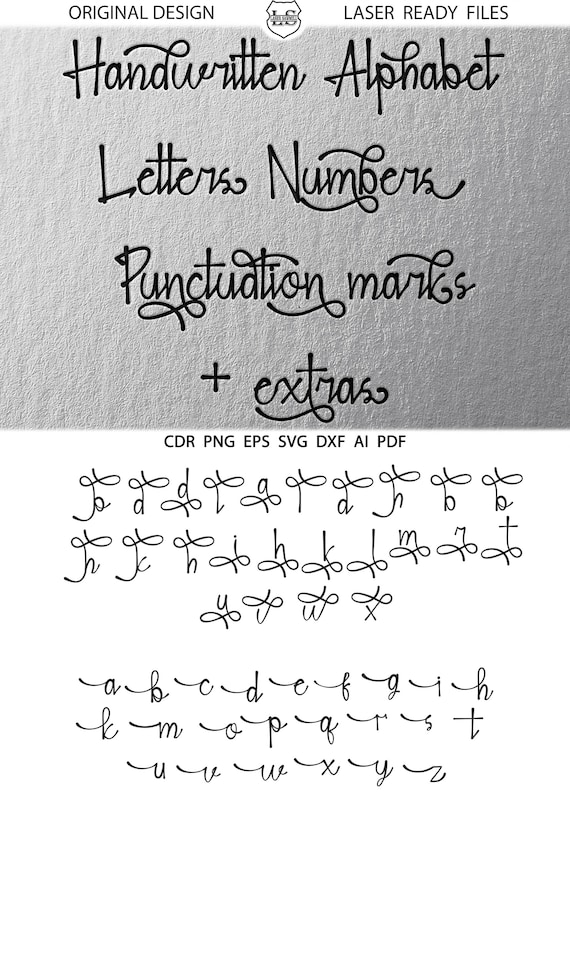 ORIGINAL DESIGN LS LASER READY FILES
Handwritten Alphabet
Letters Numbers
Punctuation marks
+ extras
CDR PNG EPS SVG DXF AI PDF
b d d l a t d h b b
h c h i h k l m r t
y v w x
a b c d e f g i h
k m o p q r s t
u v w x y z